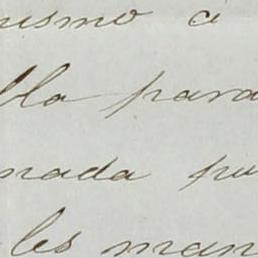 nismo a
lla para
nada pu
les man